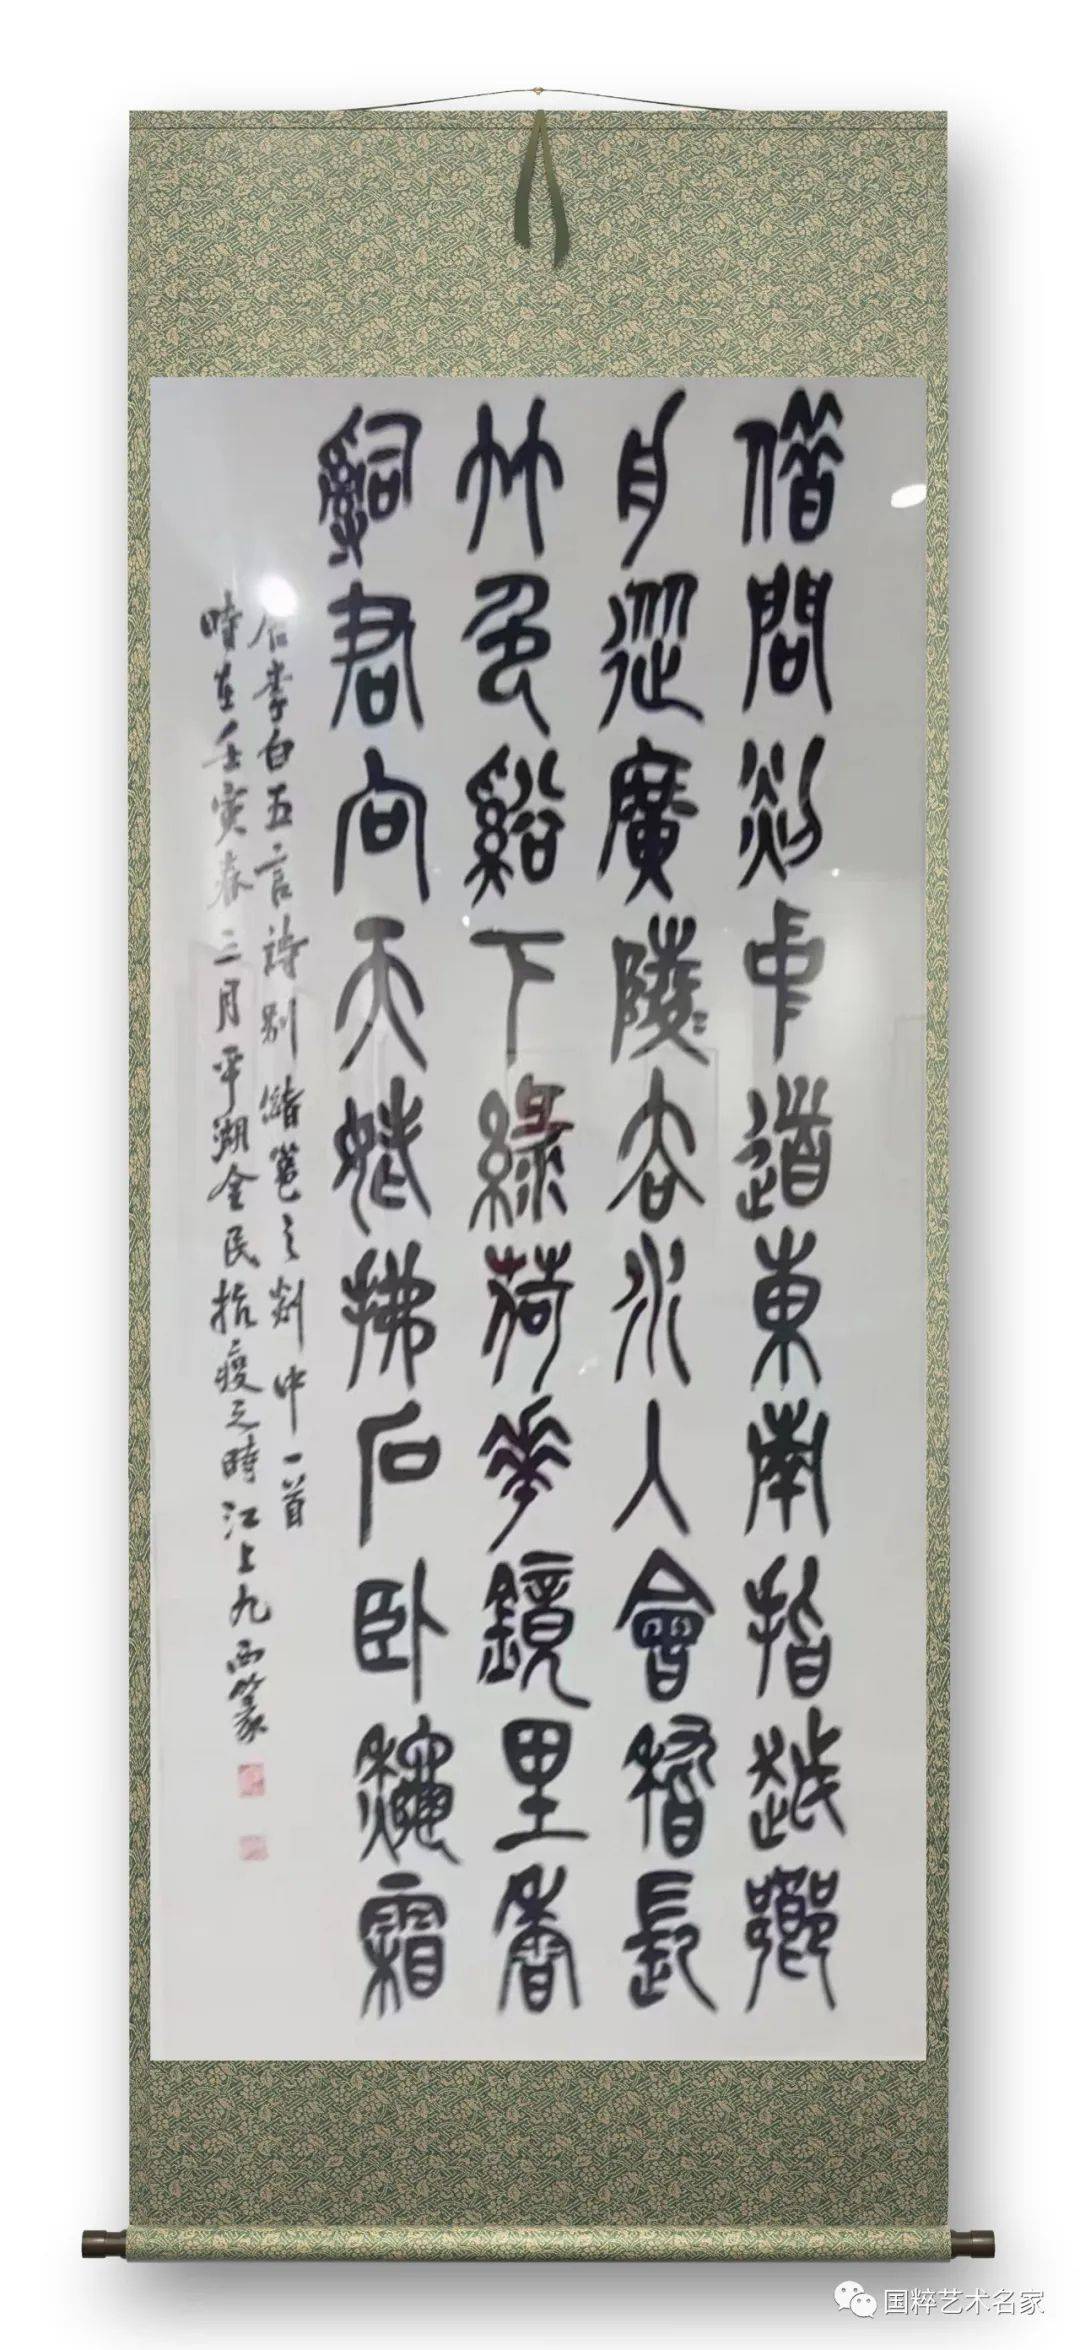 借問剡中道東南指越鄉
舟從廣陵去水入會稽長
竹色谿下綠荷花鏡里香
辭君向天姥拂石臥秋霜
右李白五言詩別儲邕之剡中一首
時在壬寅春三月平湖全民抗疫之時江上九西篆
国粹艺术名家